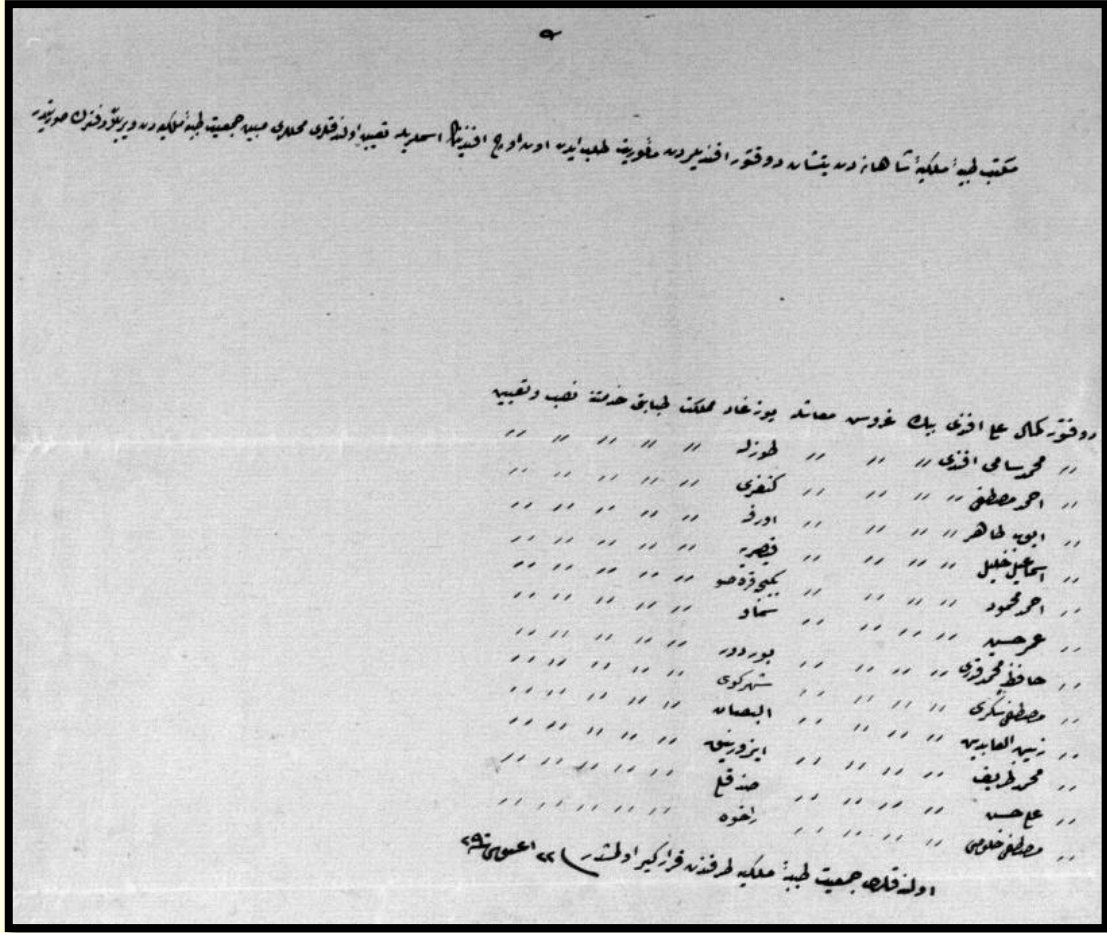 مكتب طبيهٔ ملكيهٔ شاهانه دن يتشان دوقتور افنديلردن مأموريت طلب ايدن اون اوچ افندينك اسملريله تعيين اولندقلرى محللرى مبين جمعيت طبيهٔ ملكيه دن ويريلن دفترك صورتيدر
دوقتور كمال على افندى بيك غروش معاشله يوزغاد مملكت طبابتى خدمتنه نصب وتعيين
〃 محمد سامى افندى 〃 〃 〃 طوزله 〃 〃 〃 〃 〃
〃 احمد مصطفى 〃 〃 〃 〃 كنغرى 〃 〃 〃 〃 〃
〃 ايوب طاهر 〃 〃 〃 〃 اورفه 〃 〃 〃 〃 〃
〃 اسماعيل خليل 〃 〃 〃 〃 قيصريه 〃 〃 〃 〃 〃
〃 احمد محمود 〃 〃 〃 〃 يكيجه قره صو 〃 〃 〃 〃 〃
〃 عمر حسين 〃 〃 〃 〃 〃 〃 〃 〃 〃
〃 حافظ محمد قدرى 〃 〃 〃 〃 بوردور 〃 〃 〃 〃 〃
〃 مصطفى شكرى 〃 〃 〃 〃 شهركوى 〃 〃 〃 〃 〃
〃 زين العابدين 〃 〃 〃 〃 البصان 〃 〃 〃 〃 〃
〃 محمد ظريف 〃 〃 〃 〃 ايزورنيق 〃 〃 〃 〃 〃
〃 على حسن 〃 〃 〃 〃 صندقلى 〃 〃 〃 〃 〃
〃 مصطفى خلوصى 〃 〃 〃 〃 راخوه 〃 〃 〃 〃 〃
اولندقلرى جمعيت طبيهٔ ملكيه طرفندن قراركير اولمشدر ٢٢ اغستوس سنه ٢٩٠